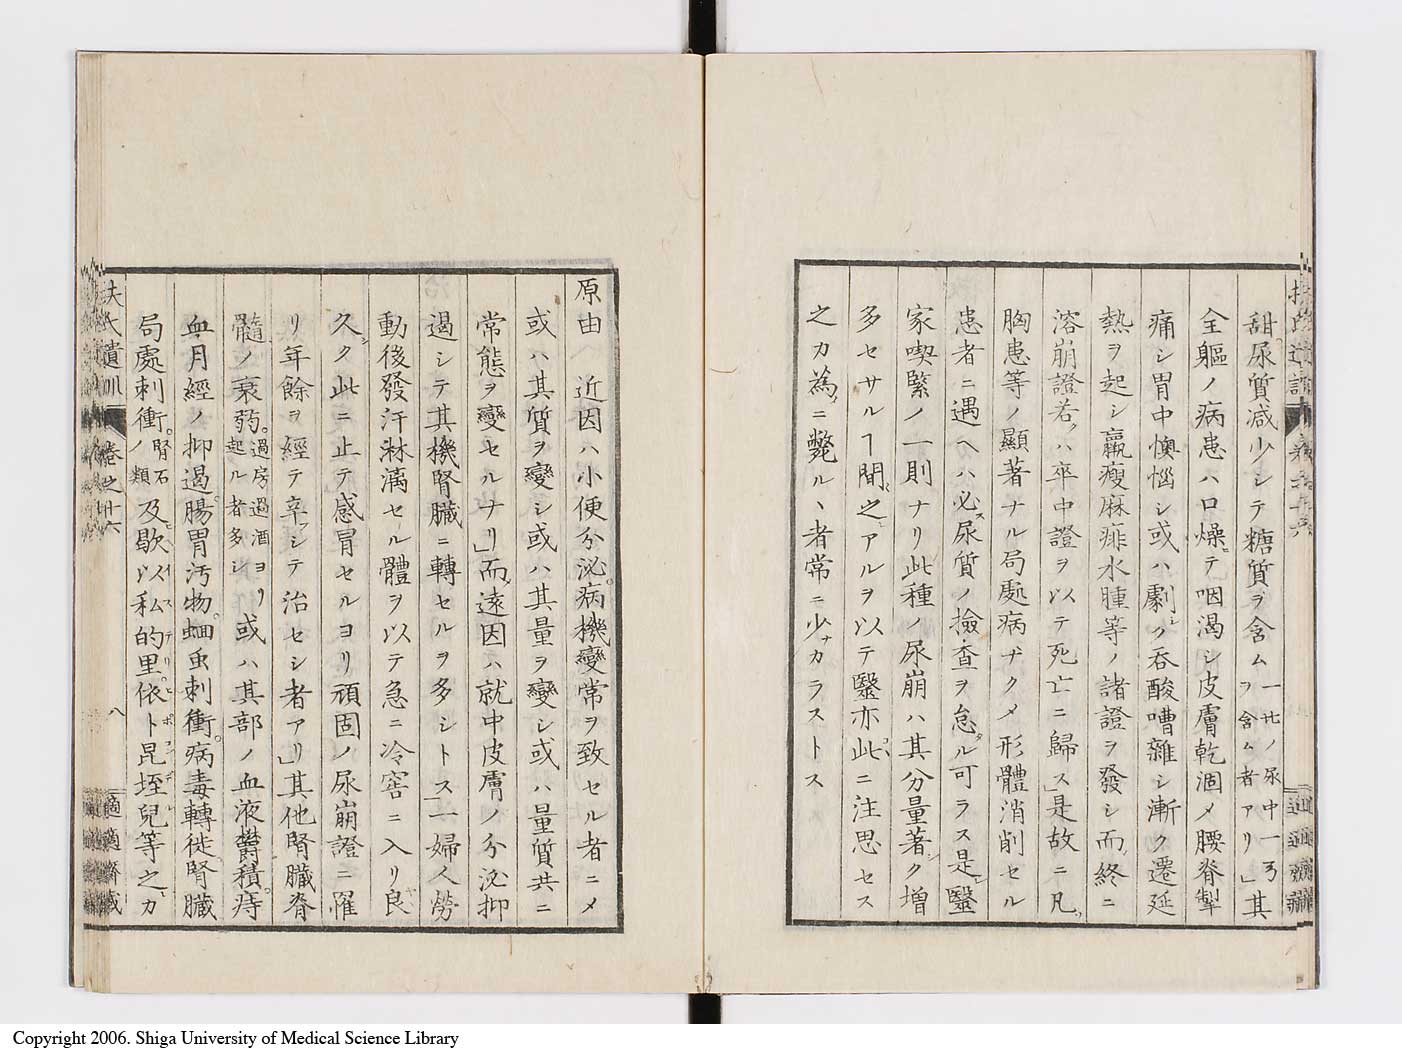 甜尿質減少シテ糖質ヲ含ム一升ノ尿中一弓ヲ含ム者アリ」其
全軀ノ病患ハ口燥テ咽渇シ皮膚乾涸メ腰脊掣
痛シ胃中懊惱シ或ハ劇ク呑酸嘈雜シ漸ク遷延
熱ヲ起シ羸瘦麻痱水腫等ノ諸證ヲ發シ而終ニ
溶崩證若ハ卒中證ヲ以テ死亡ニ歸ス」是故ニ凡
胸患等ノ顯著ナル局處病ナクメ形體消削セル
患者ニ遇ヘハ必尿質ノ撿査ヲ怠ル可ラス是醫
家喫緊ノ一則ナリ此種ノ尿崩ハ其分量著ク增
多セサルヿ間之アルヲ以テ醫亦此ニ注思セス
之カ為ニ斃ルヽ者常ニ少カラストス
原由 近因ハ小便分泌病機變常ヲ致セル者ニメ
或ハ其質ヲ變シ或ハ其量ヲ變シ或ハ量質共ニ
常態ヲ變セルナリ」而遠因ハ就中皮膚ノ分泌抑
遏シテ其機腎臓ニ轉セルヲ多シトス」一婦人勞
動後發汗淋漓セル體ヲ以テ急ニ冷窖ニ入リ良
久ク此ニ止テ感冒セルヨリ頑固ノ尿崩證ニ罹
リ年餘ヲ經テ辛シテ治セシ者アリ」其他腎臓脊
髓ノ衰弱過房過酒ヨリ起ル者多シ或ハ其部ノ血液鬱積痔
血月經ノ抑遏腸胃汚物蛔虫刺衝病毒轉徙腎臓
局處刺衝腎石ノ類及歇以私的里依卜昆垤兒等之カ
扶氏遺訓 卷之十六 八 適適齋藏